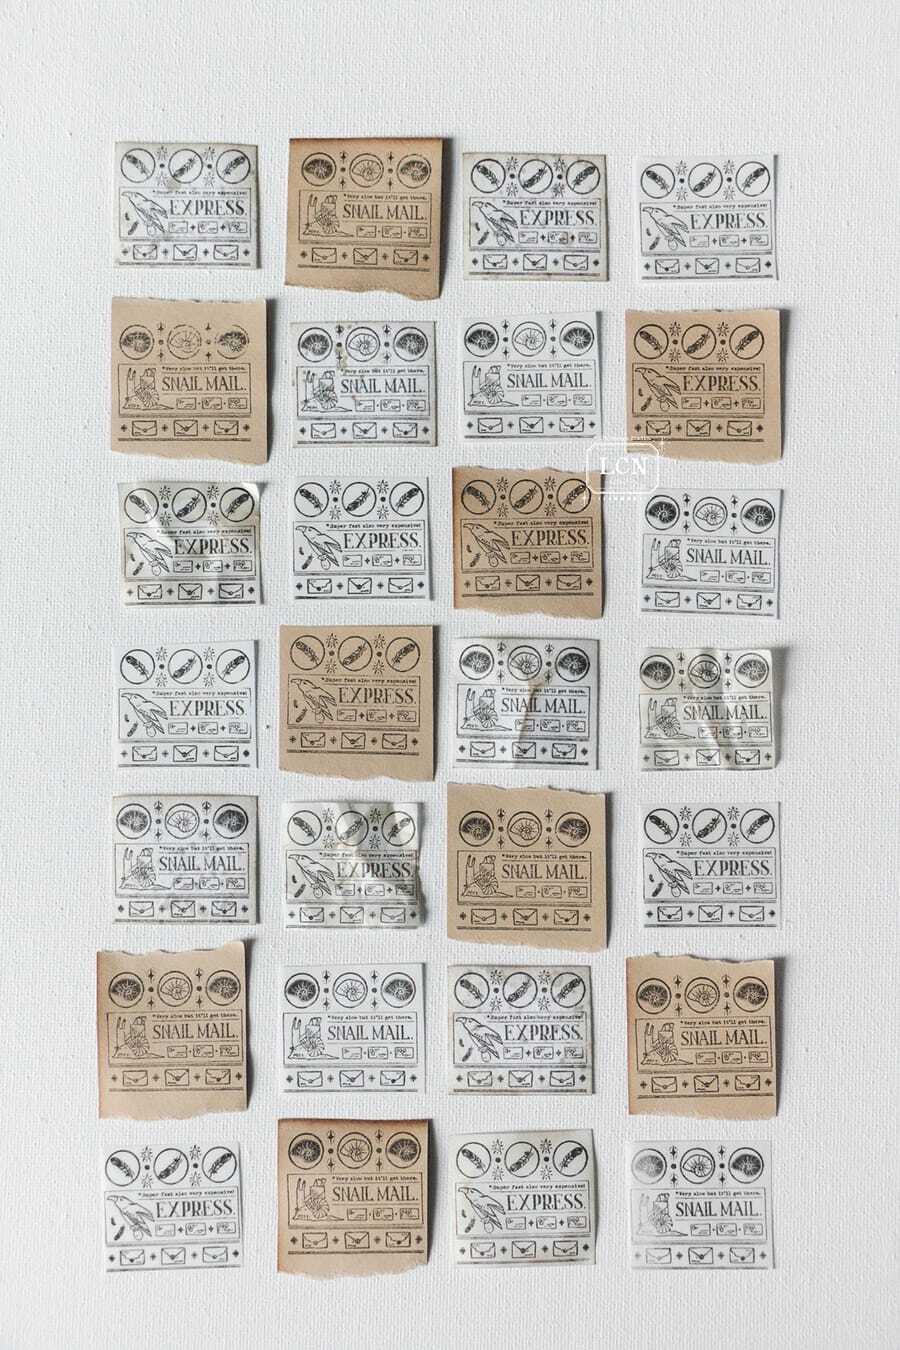 *Super fast also very expensive!
EXPRESS.
*Very slow but it'll get there.
SNAIL MAIL.
*Super fast also very expensive!
EXPRESS.
*Super fast also very expensive!
EXPRESS.
*Very slow but it'll get there.
SNAIL MAIL.
*Very slow but it'll get there.
SNAIL MAIL.
*Very slow but it'll get there.
SNAIL MAIL.
*Super fast also very expensive!
EXPRESS.
LCN
*Super fast also very expensive!
EXPRESS.
*Super fast also very expensive!
EXPRESS.
*Super fast also very expensive!
EXPRESS.
*Very slow but it'll get there.
SNAIL MAIL.
*Super fast also very expensive!
EXPRESS.
*Super fast also very expensive!
EXPRESS.
*Very slow but it'll get there.
SNAIL MAIL.
*Very slow but it'll get there.
SNAIL MAIL.
*Very slow but it'll get there.
SNAIL MAIL.
*Super fast also very expensive!
EXPRESS.
*Very slow but it'll get there.
SNAIL MAIL.
*Super fast also very expensive!
EXPRESS.
*Very slow but it'll get there.
SNAIL MAIL.
*Very slow but it'll get there.
SNAIL MAIL.
*Super fast also very expensive!
EXPRESS.
*Very slow but it'll get there.
SNAIL MAIL.
*Super fast also very expensive!
EXPRESS.
*Very slow but it'll get there.
SNAIL MAIL.
*Super fast also very expensive!
EXPRESS.
*Very slow but it'll get there.
SNAIL MAIL.